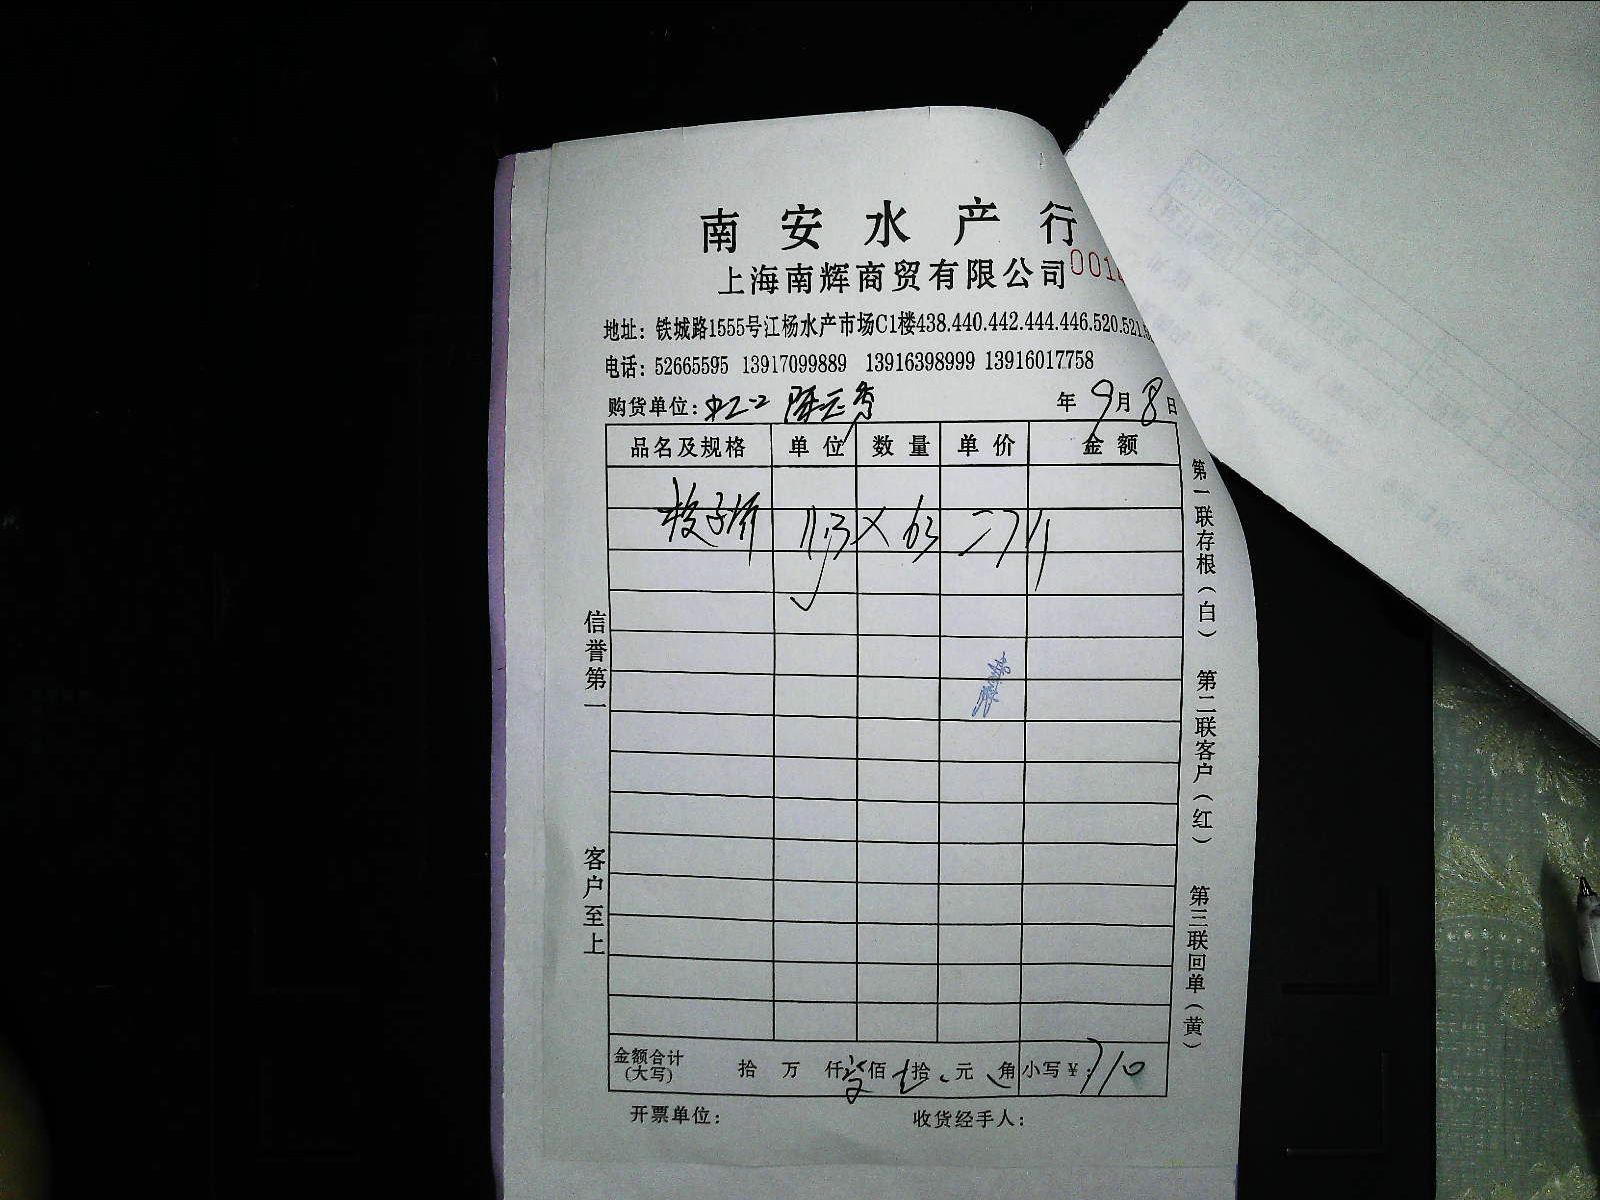 南安水产行
上海南辉商贸有限公司 001
地址：铁城路1555号江杨水产市场C1楼438.440.442.444.446.520.521.
电话：52665595 13917099889 13916398999 13916017758
购货单位：
年9月8日
品名及规格 单位 数量 单价 金额
11.3×63=711
金额合计(大写) 拾 万 仟 佰 拾 元 角 小写￥：710
开票单位： 收货经手人：
信誉第一 客户至上
第一联存根(白) 第二联客户(红) 第三联回单(黄)